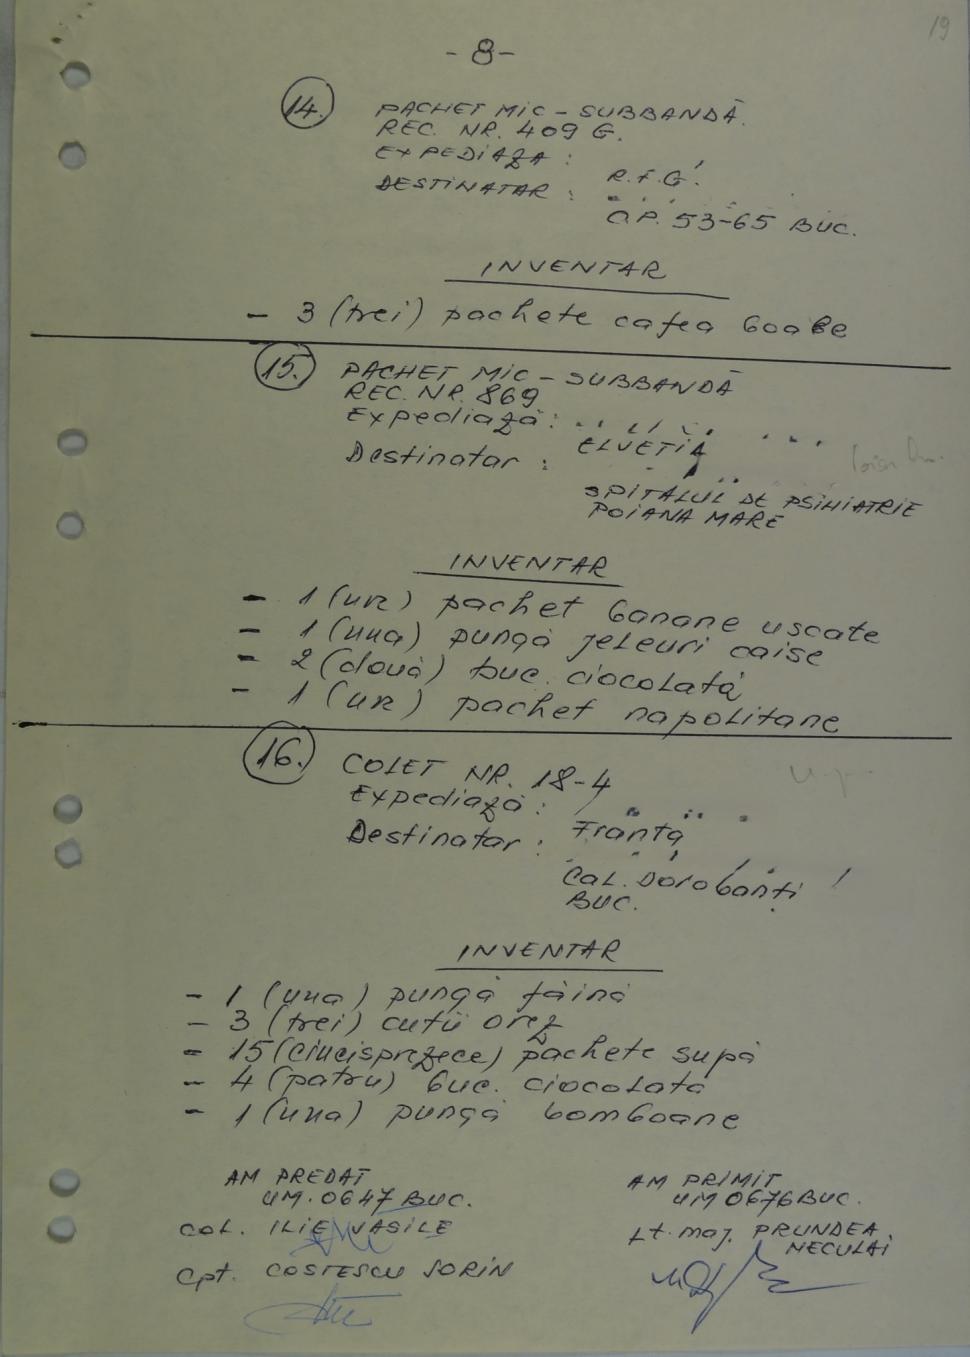 19
- 8 -
14. PACHET MIC - SUBBANDĂ
REC. NR. 409 G.
EXPEDIAZA :
R.F.G.
DESTINATAR :
OP. 53-65 BUC.
INVENTAR
- 3 (trei) pachete cafea boabe
15. PACHET MIC - SUBBANDĂ
REC. NR. 869
Expediază :
ELVEȚIA
Destinatar :
SPITALUL DE PSIHIATRIE
POIANA MARE
INVENTAR
- 1 (un) pachet banane uscate
- 1 (una) pungă jeleuri caise
- 2 (două) buc. ciocolată
- 1 (un) pachet napolitane
16. COLET NR. 18-4
Expediază :
Franța
Destinatar :
Cal. Dorobanți
BUC.
INVENTAR
- 1 (una) pungă făină
- 3 (trei) cutii orez
- 15 (cincisprezece) pachete supă
- 4 (patru) buc. ciocolată
- 1 (una) pungă bomboane
AM PREDAT
UM. 0647 BUC.
Col. ILIE VASILE
Cpt. COSTESCU SORIN
AM PRIMIT
UM 0676 BUC.
Lt. maj. PRUNDEA
NECULAI